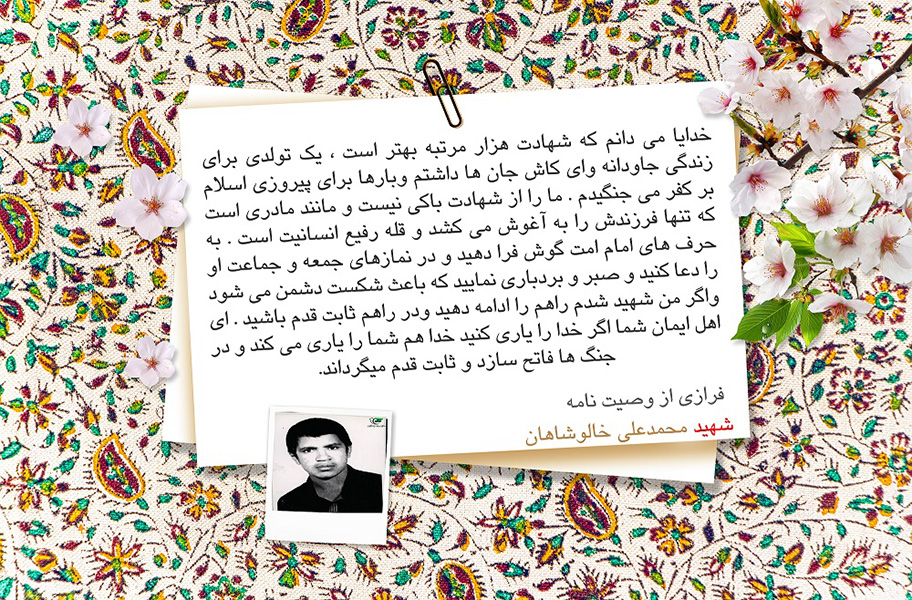 خدایا می دانم که شهادت هزار مرتبه بهتر است ، یک تولدی برای
زندگی جاودانه وای کاش جان ها داشتم وبارها برای پیروزی اسلام
بر کفر می جنگیدم . ما را از شهادت باکی نیست و مانند مادری است
که تنها فرزندش را به آغوش می کشد و قله رفیع انسانیت است . به
حرف های امام امت گوش فرا دهید و در نمازهای جمعه و جماعت او
را دعا کنید و صبر و بردباری نمایید که باعث شکست دشمن می شود
واگر من شهید شدم راهم را ادامه دهید ودر راهم ثابت قدم باشید . ای
اهل ایمان شما اگر خدا را یاری کنید خدا هم شما را یاری می کند و در
جنگ ها فاتح سازد و ثابت قدم میگرداند.
فرازی از وصیت نامه
شهید محمدعلی خالوشاهان